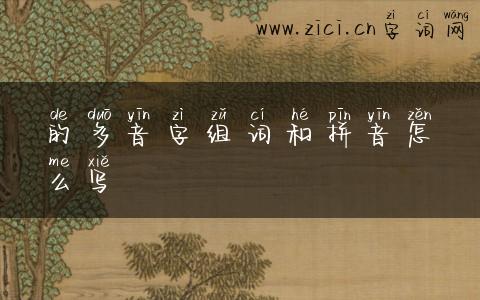 zì cí wǎng
www.zici.cn字词网
de duō yīn zì zǔ cí hé pīn yīn zěn
的多音字组词和拼音怎
me xiě
么写